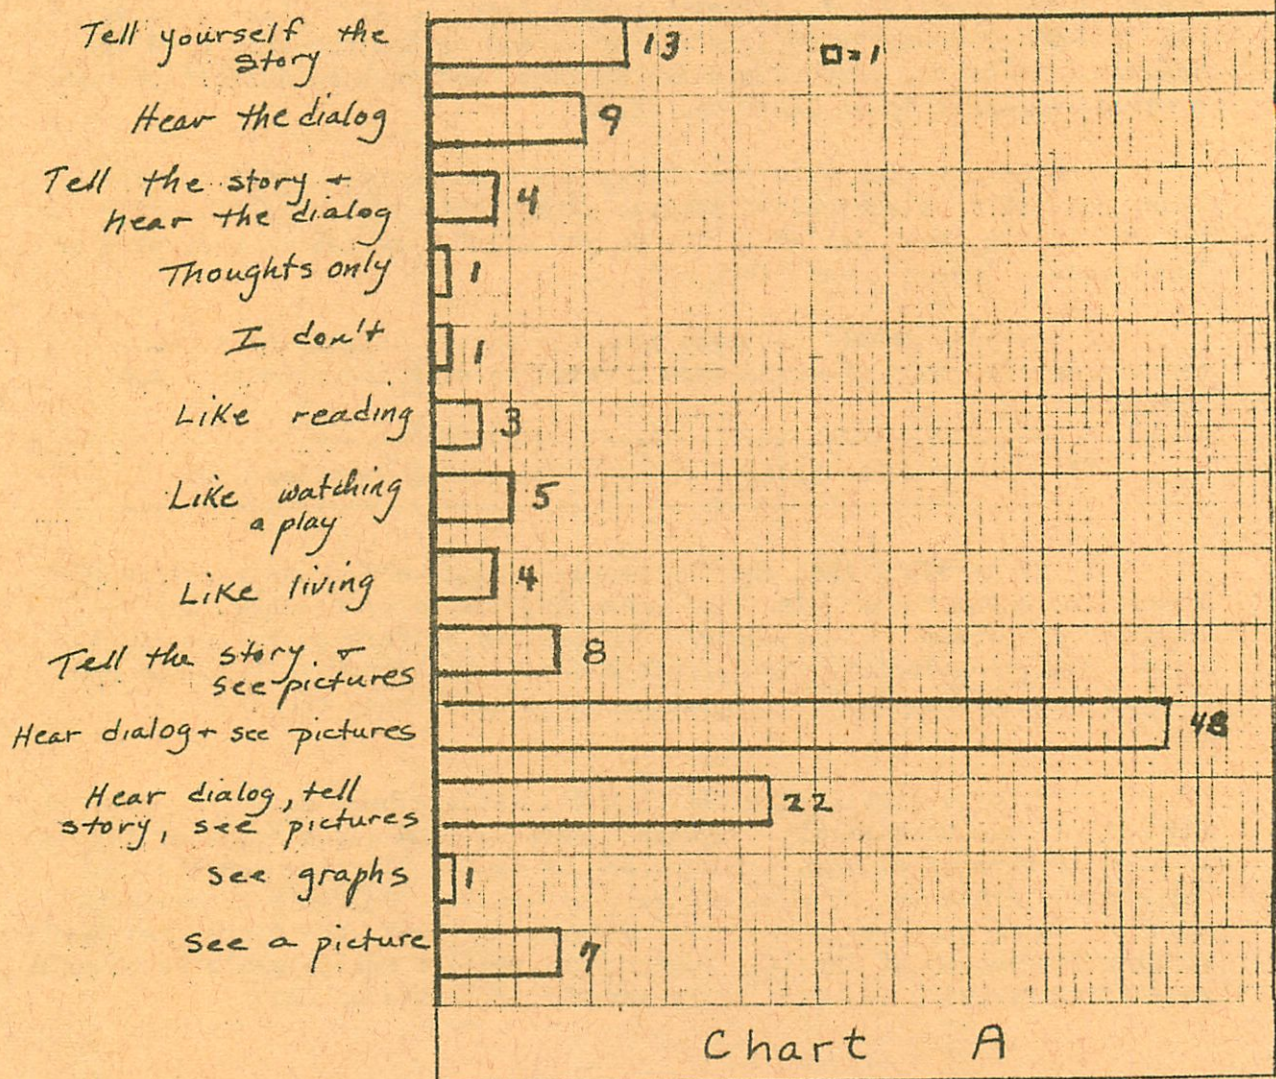 Tell yourself the
story
13
□ = 1
Hear the dialog
9
Tell the story +
hear the dialog
4
Thoughts only
1
I don't
1
Like reading
3
Like watching
a play
5
Like living
4
Tell the story. +
see pictures
8
Hear dialog + see pictures
48
Hear dialog, tell
story, see pictures
22
see graphs
1
see a picture
7
Chart A